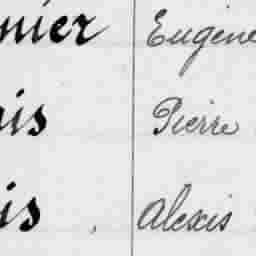 nier Eugène
is Pierre
is Alexis